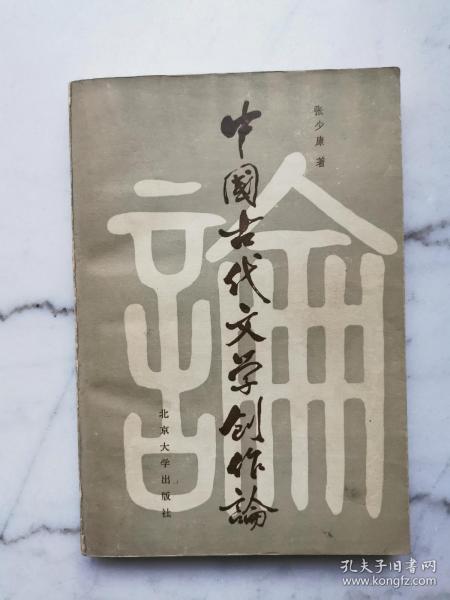 張少康 著
中國古代文学创作論
論
北京大学出版社
孔夫子旧书网
www.kongfz.com